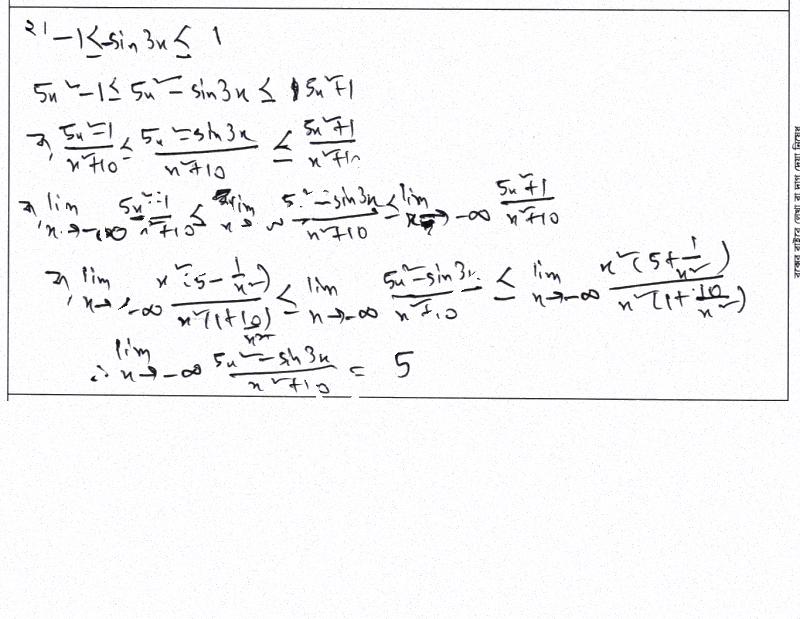 ২। -1 ≤ sin 3x ≤ 1
5x² - 1 ≤ 5x² - sin 3x ≤ 5x² + 1
বা, (5x² - 1)/(x² + 10) ≤ (5x² - sin 3x)/(x² + 10) ≤ (5x² + 1)/(x² + 10)
বা, lim x→-∞ (5x² - 1)/(x² + 10) ≤ lim x→-∞ (5x² - sin 3x)/(x² + 10) ≤ lim x→-∞ (5x² + 1)/(x² + 10)
বা, lim x→-∞ x²(5 - 1/x²)/x²(1 + 10/x²) ≤ lim x→-∞ (5x² - sin 3x)/(x² + 10) ≤ lim x→-∞ x²(5 + 1/x²)/x²(1 + 10/x²)
∴ lim x→-∞ (5x² - sin 3x)/(x² + 10) = 5